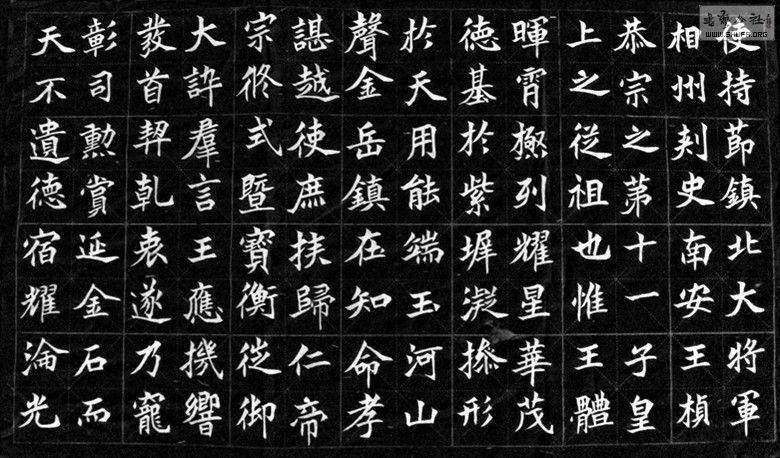 使持節鎮北大將軍
相州刺史南安王楨
恭宗之第十一子皇
上之從祖也惟王體
暉霄極列耀星華茂
德基於紫墀凝操形
於天用能端玉河山
聲金岳鎮在知命孝
諶越使庶扶歸仁帝
宗脩式暨寶衡徙御
大訊羣言王應機響
發首契乾衷遂乃寵
彰司勳賞延金石而
天不遺德宿耀淪光
WWW.SHUFA.ORG